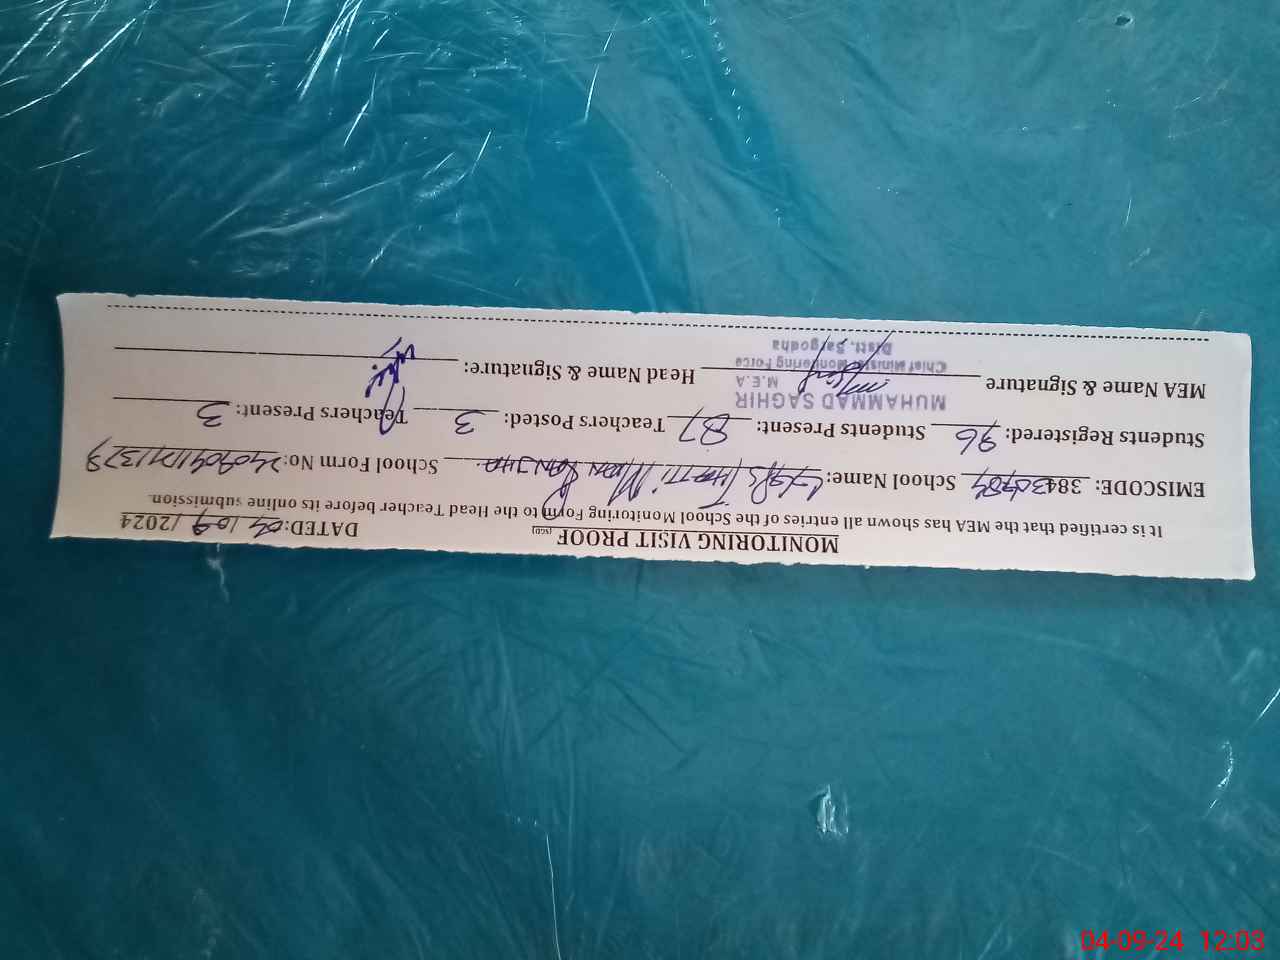 MONITORING VISIT PROOF (SGD) DATED: 04 / 09 / 2024
It is certified that the MEA has shown all entries of the School Monitoring Form to the Head Teacher before its online submission.
EMISCODE: 384 School Name: School Form No:
Students Registered: 96 Students Present: 87 Teachers Posted: 3 Teachers Present: 3
MEA Name & Signature Head Name & Signature:
MUHAMMAD SAGHIR
M.E.A
Chief Minister Monitoring Force
Distt. Sargodha
04-09-24 12:03